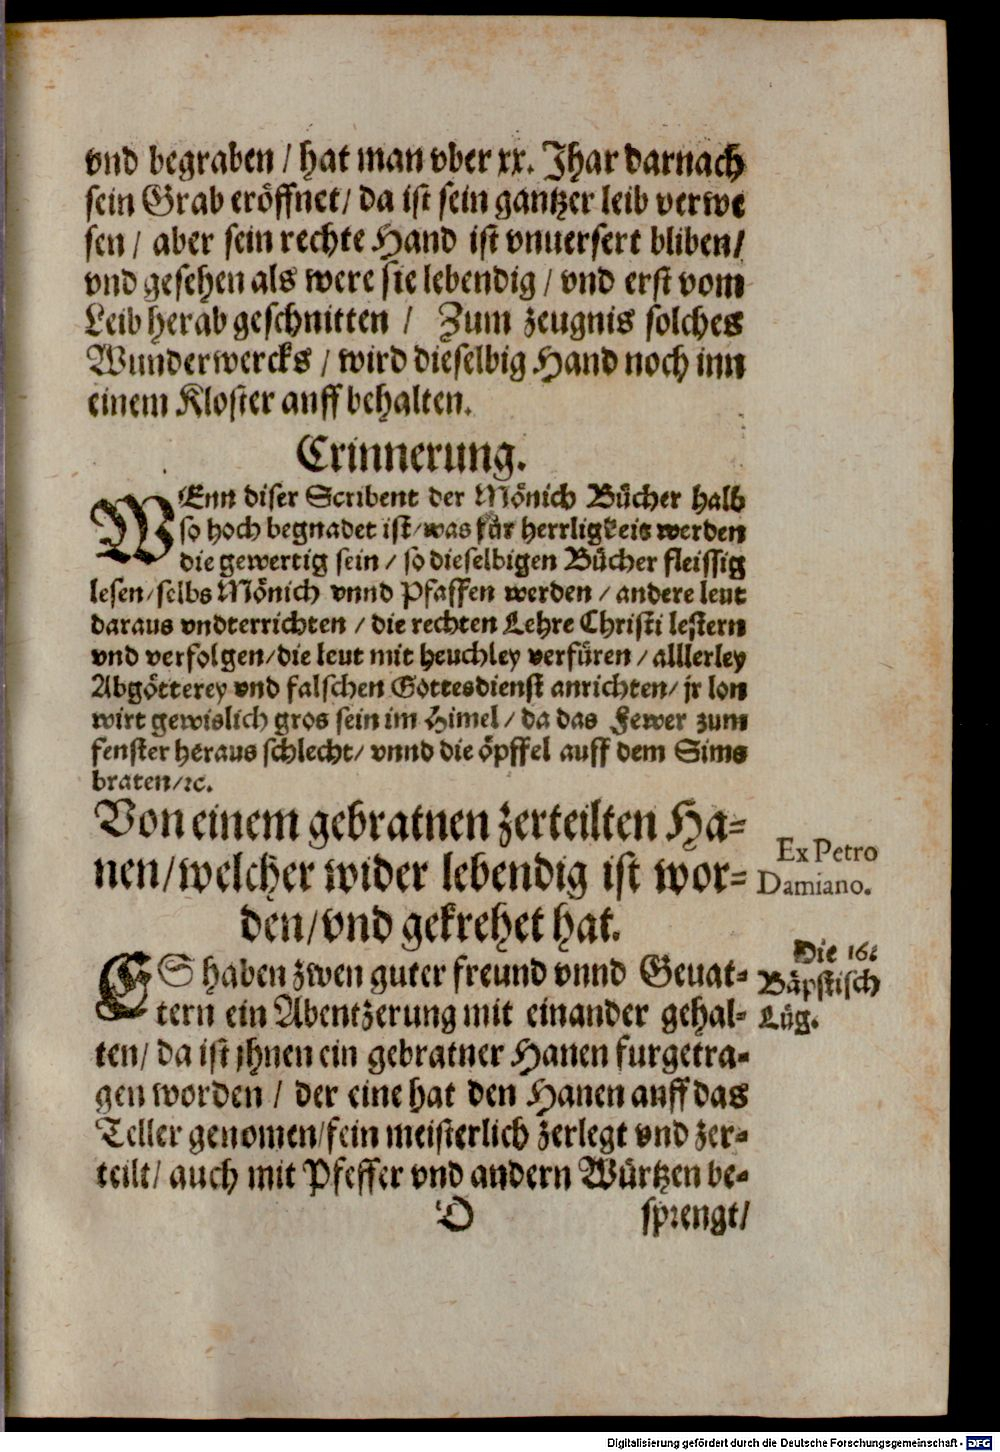 vnd begraben / hat man vber xx. Jhar darnach
sein Grab eröffnet/ da ist sein gantzer leib verwe
sen / aber sein rechte Hand ist vnuersert bliben/
vnd gesehen als were sie lebendig / vnd erst vom
Leib herab geschnitten / Zum zeugnis solches
Wunderwercks / wird dieselbig Hand noch inn
einem Kloster auff behalten.
Erinnerung.
WEnn diser Scribent der Mönich Bücher halb
so hoch begnadet ist/was für herrligkeit werden
die gewertig sein / so dieselbigen Bücher fleissig
lesen/selbs Mönich vnnd Pfaffen werden / andere leut
daraus vndterrichten / die rechten Lehre Christi lestern
vnd verfolgen/die leut mit heuchley verfüren / alllerley
Abgötterey vnd falschen Gottesdienst anrichten/ jr lon
wirt gewislich gros sein im Himel / da das Fewer zum
fenster heraus schlecht/ vnnd die öpffel auff dem Sims
braten/ꝛc.
Von einem gebratnen zerteilten Ha=
nen/welcher wider lebendig ist wor=
den/vnd gekrehet hat.
Ex Petro
Damiano.
ES haben zwen guter freund vnnd Geuat=
tern ein Abentzerung mit einander gehal=
ten/ da ist jhnen ein gebratner Hanen furgetra=
gen worden / der eine hat den Hanen auff das
Teller genomen/fein meisterlich zerlegt vnd zer=
teilt/ auch mit Pfeffer vnd andern Würtzen be=
Die 16.
Bäpstisch
Lüg.
O sprengt/
Digitalisierung gefördert durch die Deutsche Forschungsgemeinschaft - DFG